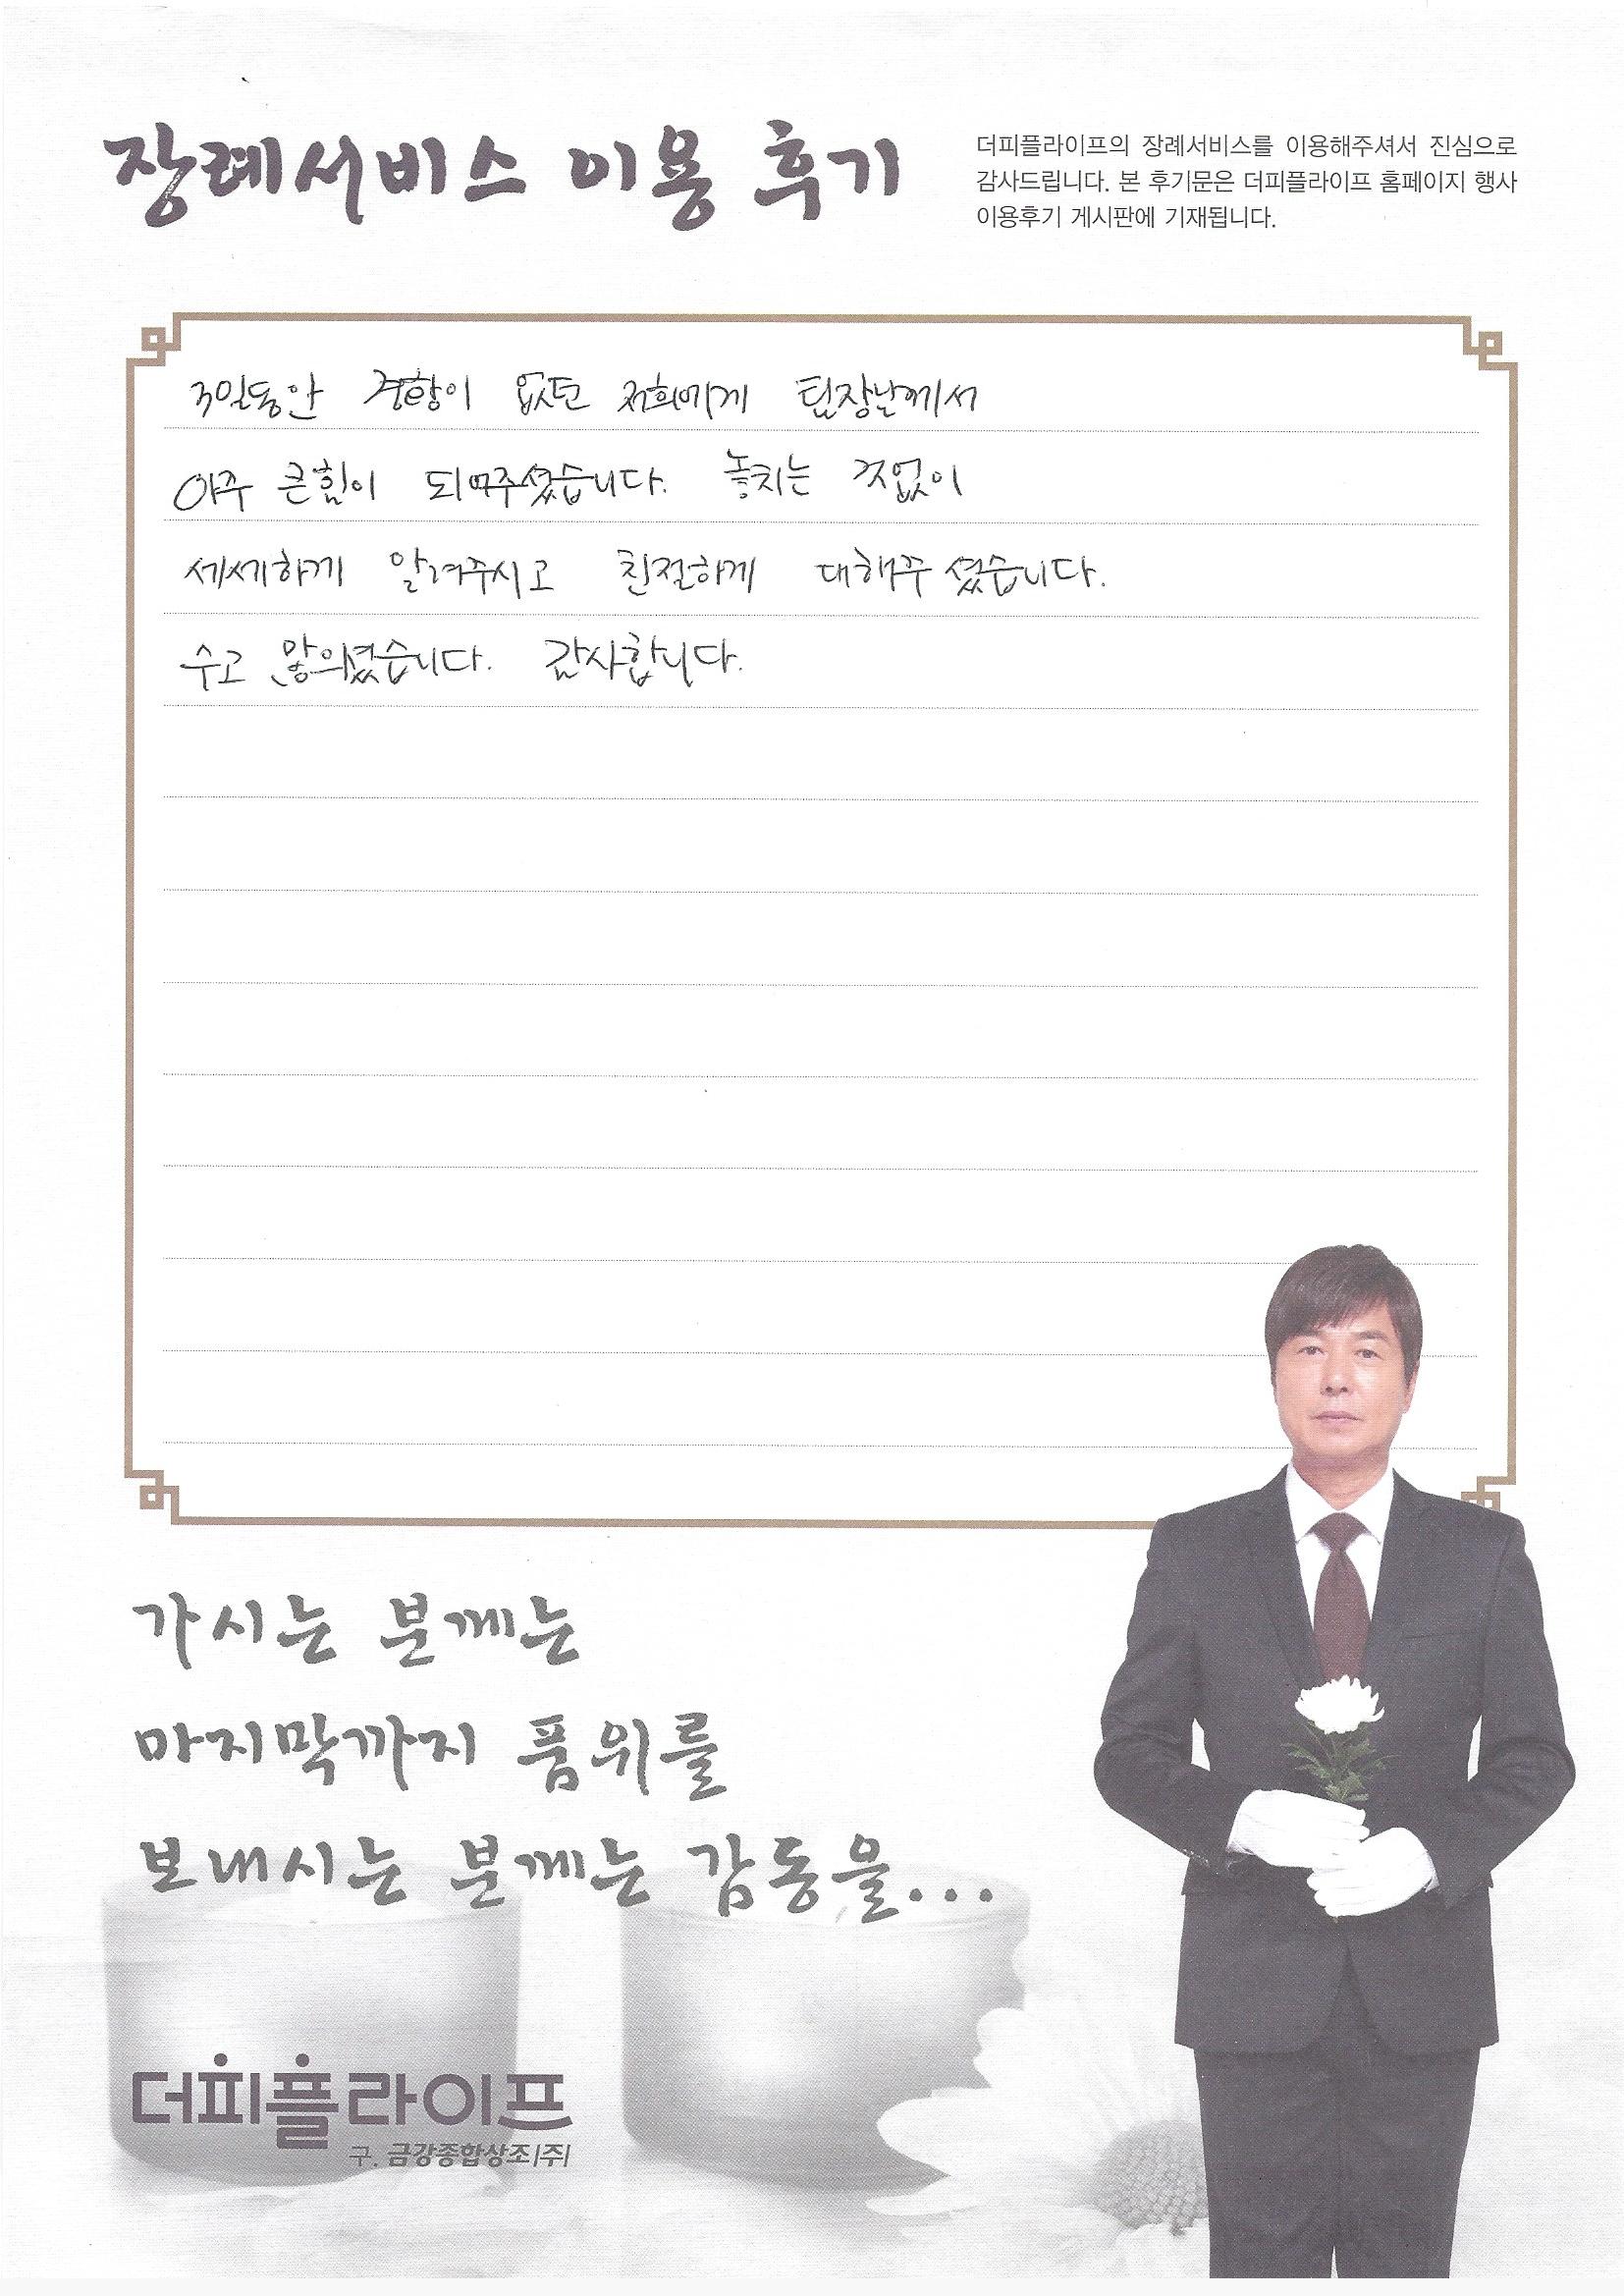 장례서비스 이용 후기
더피플라이프의 장례서비스를 이용해주셔서 진심으로
감사드립니다. 본 후기문은 더피플라이프 홈페이지 행사
이용후기 게시판에 기재됩니다.
3일동안 경황이 없던 저희에게 팀장님께서
아주 큰힘이 되어주셨습니다. 놓치는 것없이
세세하게 알려주시고 친절하게 대해주셨습니다.
수고 많으셨습니다. 감사합니다.
가시는 분께는
마지막까지 품위를
보내시는 분께는 감동을...
더피플라이프
구. 금강종합상조(주)